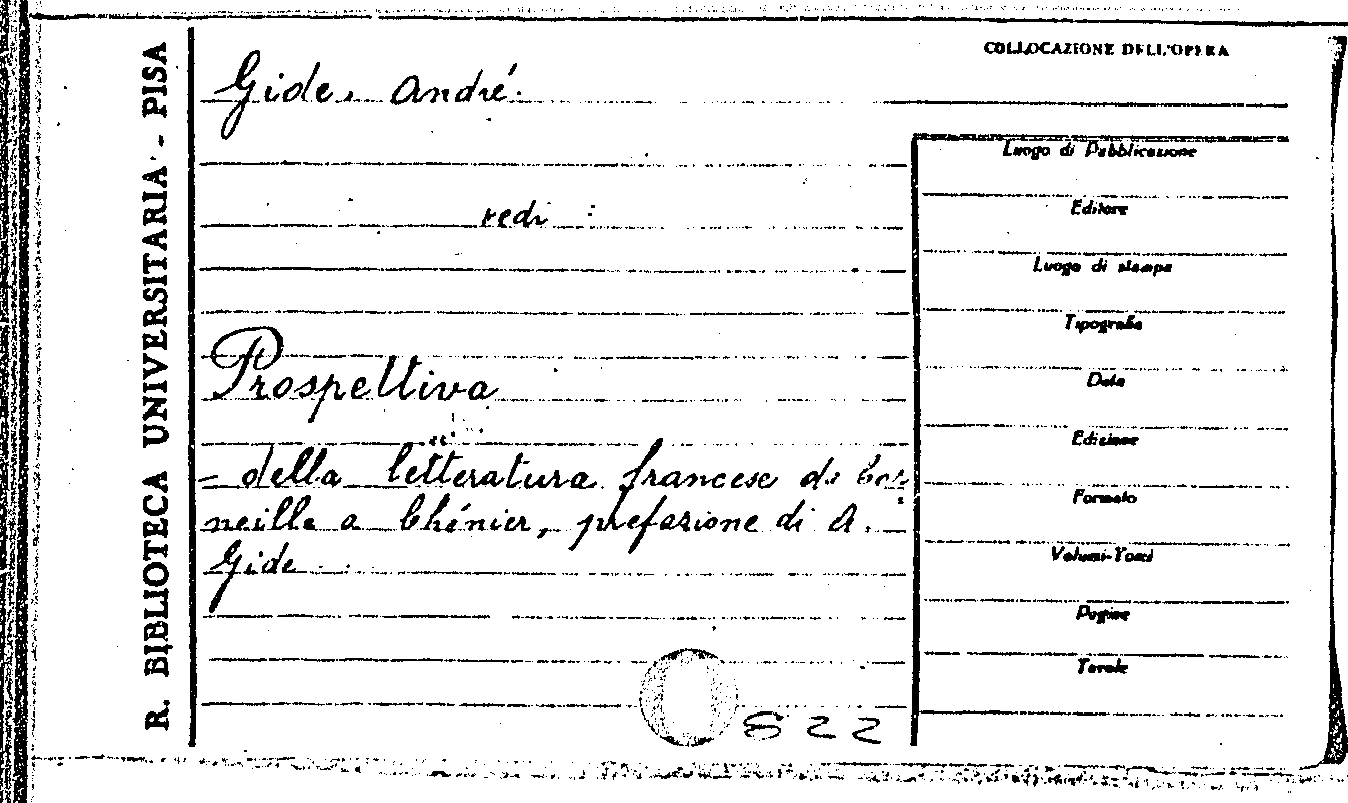 R. BIBLIOTECA UNIVERSITARIA - PISA
COLLOCAZIONE DELL'OPERA
Gide, André.
vedi :
Prospettiva
- della letteratura francese da Cor-
neille a Chénier, prefazione di A.
Gide
Luogo di Pubblicazione
Editore
Luogo di stampa
Tipografia
Data
Edizione
Formato
Volumi-Tomi
Pagine
Tavole
822